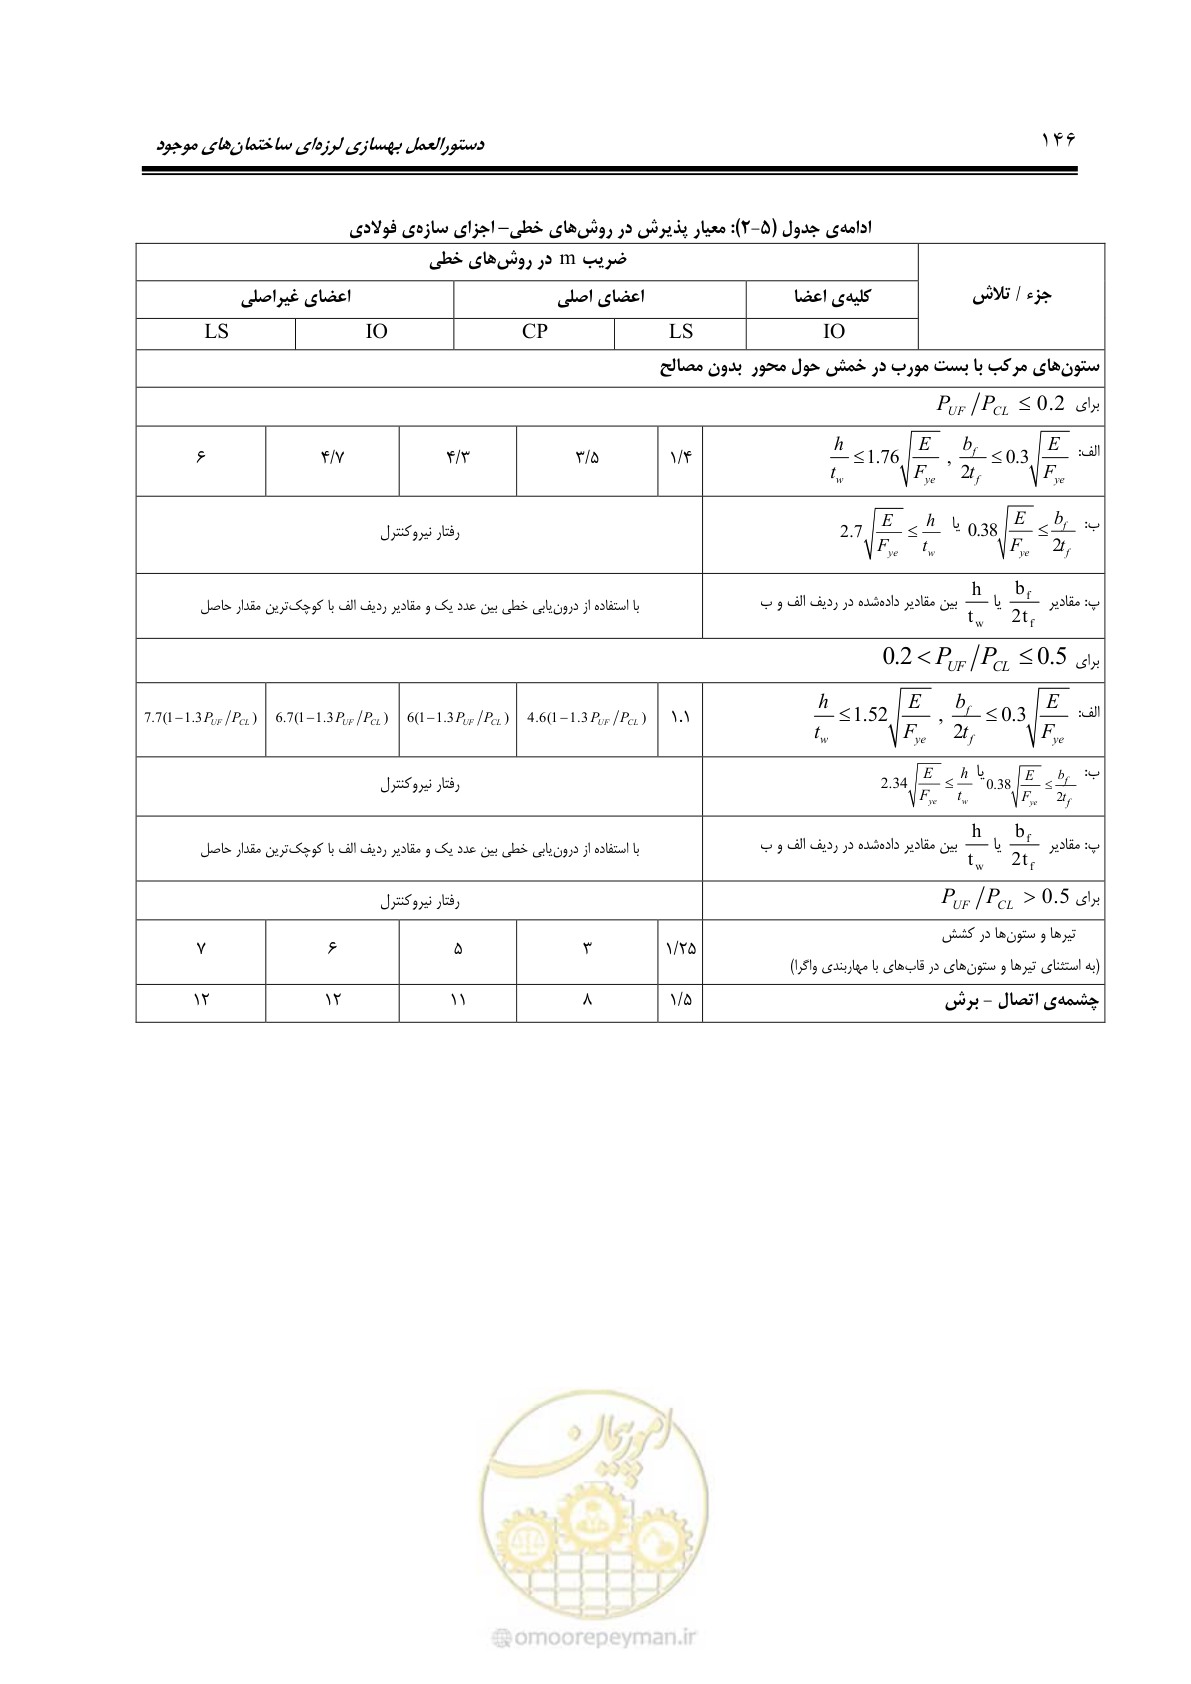 ۱۴۶
دستورالعمل بهسازی لرزه‌ای ساختمان‌های موجود
ادامه‌ی جدول (۵-۲): معیار پذیرش در روش‌های خطی– اجزای سازه‌ی فولادی
جزء / تلاش
ضریب m در روش‌های خطی
کلیه‌ی اعضا
اعضای اصلی
اعضای غیراصلی
IO
LS
CP
IO
LS
ستون‌های مرکب با بست مورب در خمش حول محور بدون مصالح
برای P_UF/P_CL ≤ 0.2
الف: h/t_w ≤ 1.76√(E/F_ye) , b_f/2t_f ≤ 0.3√(E/F_ye)
۱/۴
۳/۵
۴/۳
۴/۷
۶
ب: 0.38√(E/F_ye) ≤ b_f/2t_f یا 2.7√(E/F_ye) ≤ h/t_w
رفتار نیروکنترل
پ: مقادیر b_f/2t_f یا h/t_w بین مقادیر داده‌شده در ردیف الف و ب
با استفاده از درون‌یابی خطی بین عدد یک و مقادیر ردیف الف با کوچک‌ترین مقدار حاصل
برای 0.2 < P_UF/P_CL ≤ 0.5
الف: h/t_w ≤ 1.52√(E/F_ye) , b_f/2t_f ≤ 0.3√(E/F_ye)
۱.۱
4.6(1−1.3P_UF/P_CL)
6(1−1.3P_UF/P_CL)
6.7(1−1.3P_UF/P_CL)
7.7(1−1.3P_UF/P_CL)
ب: 0.38√(E/F_ye) ≤ b_f/2t_f یا 2.34√(E/F_ye) ≤ h/t_w
رفتار نیروکنترل
پ: مقادیر b_f/2t_f یا h/t_w بین مقادیر داده‌شده در ردیف الف و ب
با استفاده از درون‌یابی خطی بین عدد یک و مقادیر ردیف الف با کوچک‌ترین مقدار حاصل
برای P_UF/P_CL > 0.5
رفتار نیروکنترل
تیرها و ستون‌ها در کشش
(به استثنای تیرها و ستون‌های در قاب‌های با مهاربندی واگرا)
۱/۲۵
۳
۵
۶
۷
چشمه‌ی اتصال – برش
۱/۵
۸
۱۱
۱۲
۱۲
امور پیمان
@omoorepeyman.ir